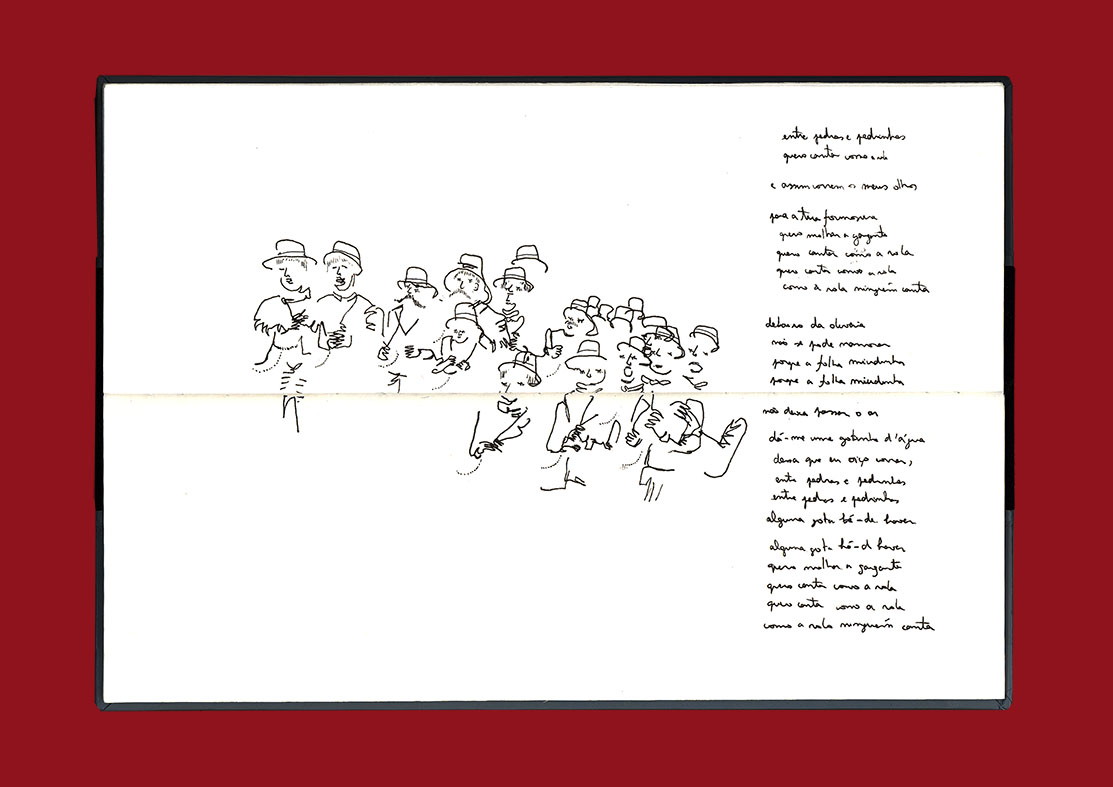 entre pedras e pedrinhas
quero cantar como a rola
e assim correm os meus olhos
para a tua formosura
quero molhar a garganta
quero cantar como a rola
quero cantar como a rola
como a rola ninguém canta
debaixo da oliveira
não se pode namorar
porque a folha miudinha
porque a folha miudinha
não deixa passar o ar
dá-me uma gotinha d'água
dessa que eu oiço correr,
entre pedras e pedrinhas
entre pedras e pedrinhas
alguma gota há-de haver
alguma gota há-d haver
quero molhar a garganta
quero cantar como a rola
quero cantar como a rola
como a rola ninguém canta